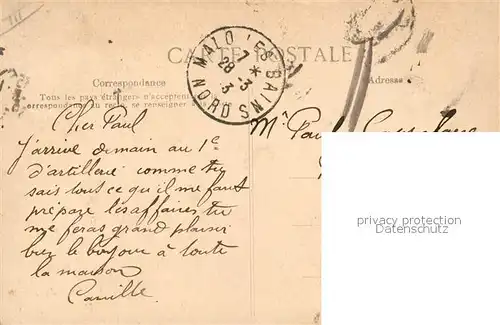 CARTE POSTALE
MALO LES BAINS
7
28 * 3
3
NORD
Correspondance
Adresse
Tous les pays étrangers n'acceptent
correspondance au recto, se renseigner
Cher Paul
J'arrive demain au 1e
d'artillerie comme tu
sais tout ce qu'il me faut
prépare les affaires, tu
me feras grand plaisir
bien le bonjour à toute
la maison
Camille
Mr Paul
privacy protection
Datenschutz